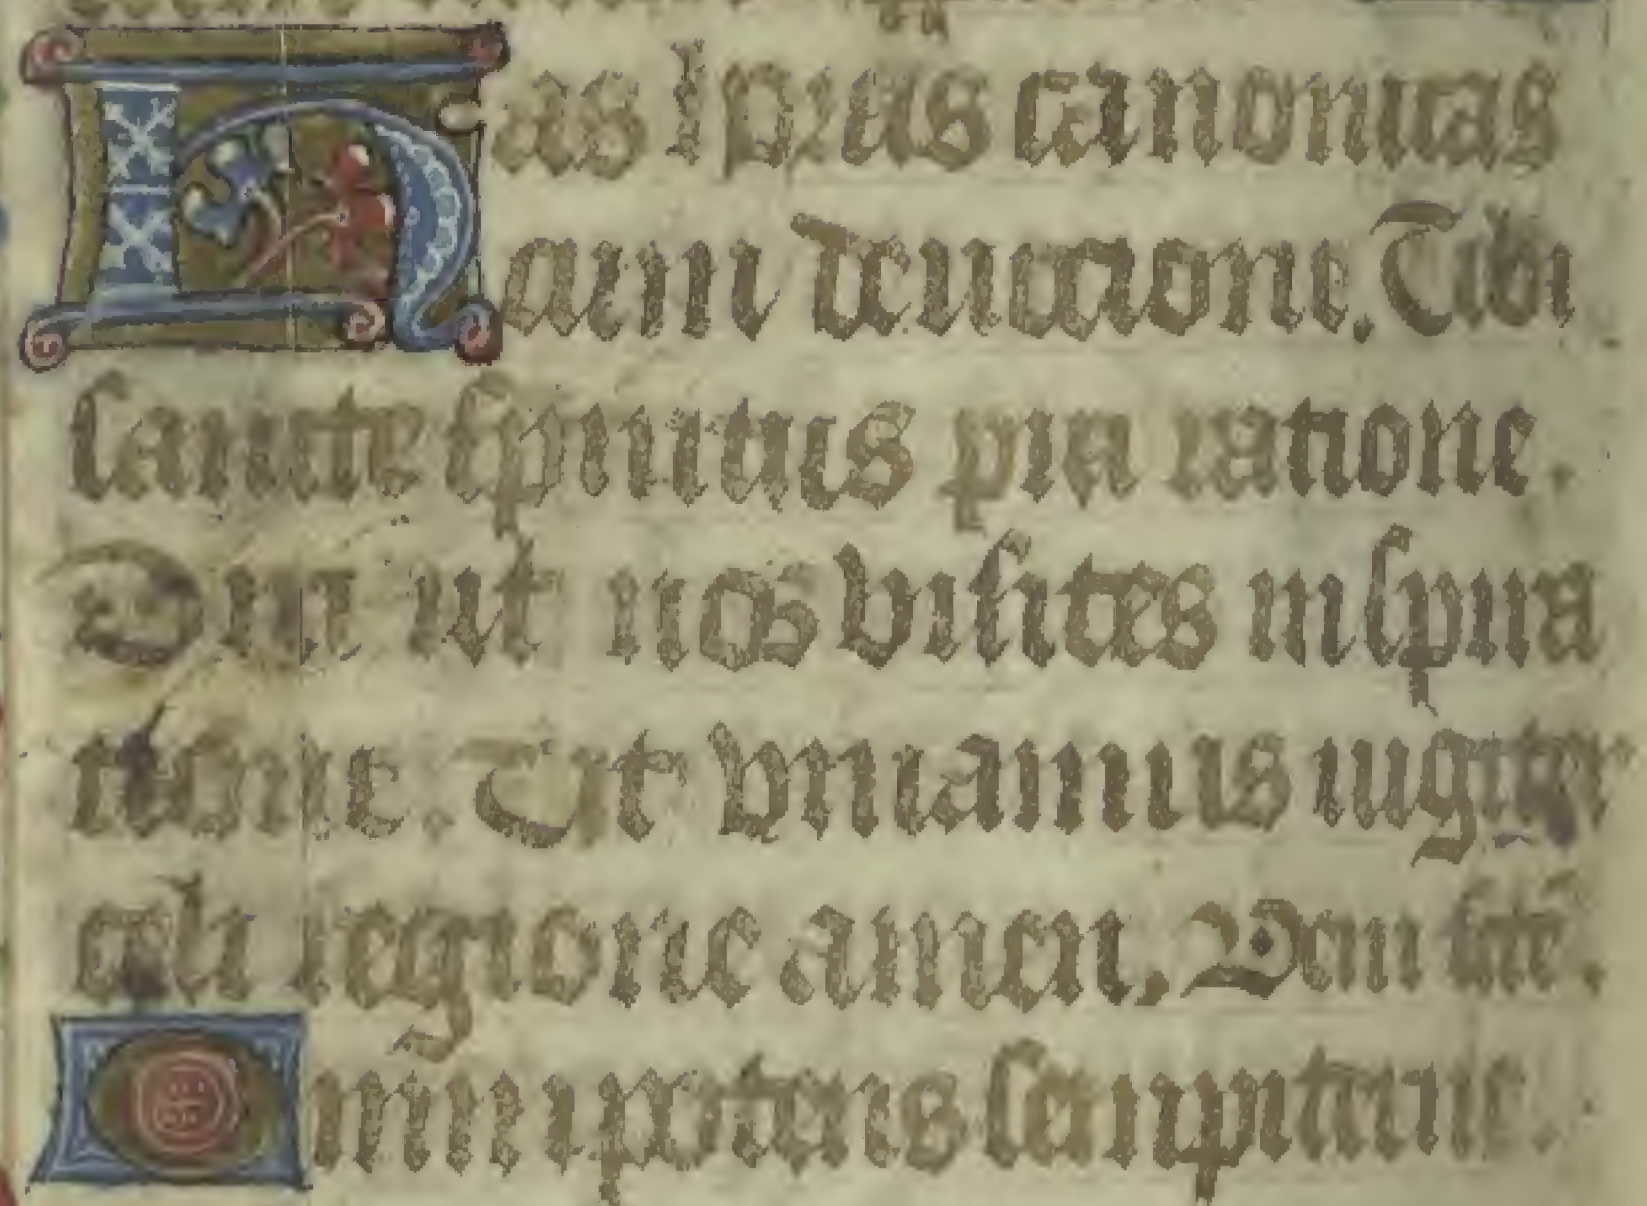 Has horas canonicas
cum deuocione. Tibi
sancte spiritus pia ratione.
Dixi ut nos visites inspira
tione. Et viuamus iugiter
celi regione amen. Veni sancte.
Omnipotens sempiterne.